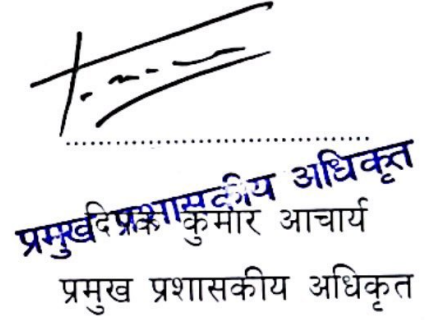 प्रमुख प्रशासकीय अधिकृत
दिपक कुमार आचार्य
प्रमुख प्रशासकीय अधिकृत